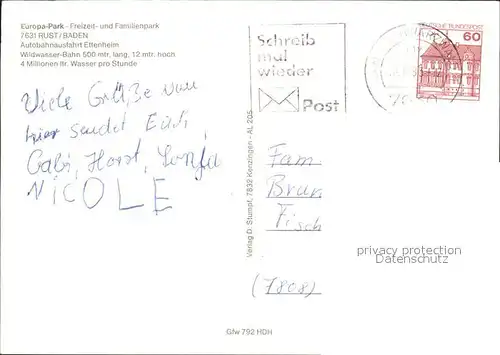 Europa-Park - Freizeit- und Familienpark
7631 RUST/BADEN
Autobahnausfahrt Ettenheim
Wildwasser-Bahn 500 mtr. lang, 12 mtr. hoch
4 Millionen ltr. Wasser pro Stunde
Viele Grüße von
hier sendet Euch
Gabi, Horst,
NICOLE
Verlag D. Stumpf, 7832 Kenzingen - AL 205
Schreib
mal
wieder
Post
DEUTSCHE BUNDESPOST
60
Fam
Brun
Fisch
(7808)
privacy protection
Datenschutz
Gfw 792 HDH